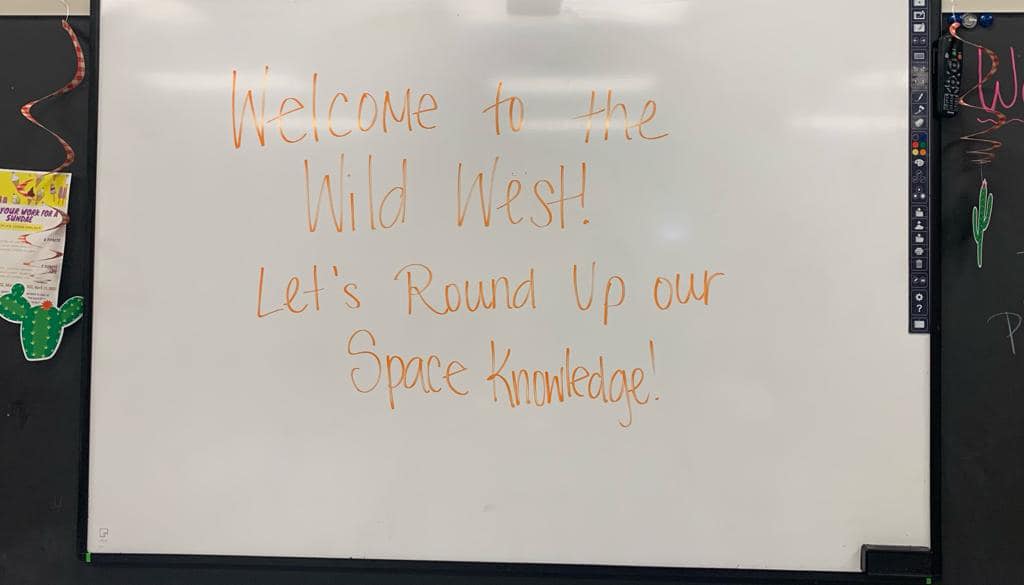 Welcome to the
Wild West!
Let's Round Up our
Space Knowledge!
YOUR WORK FOR A
SUNDAE